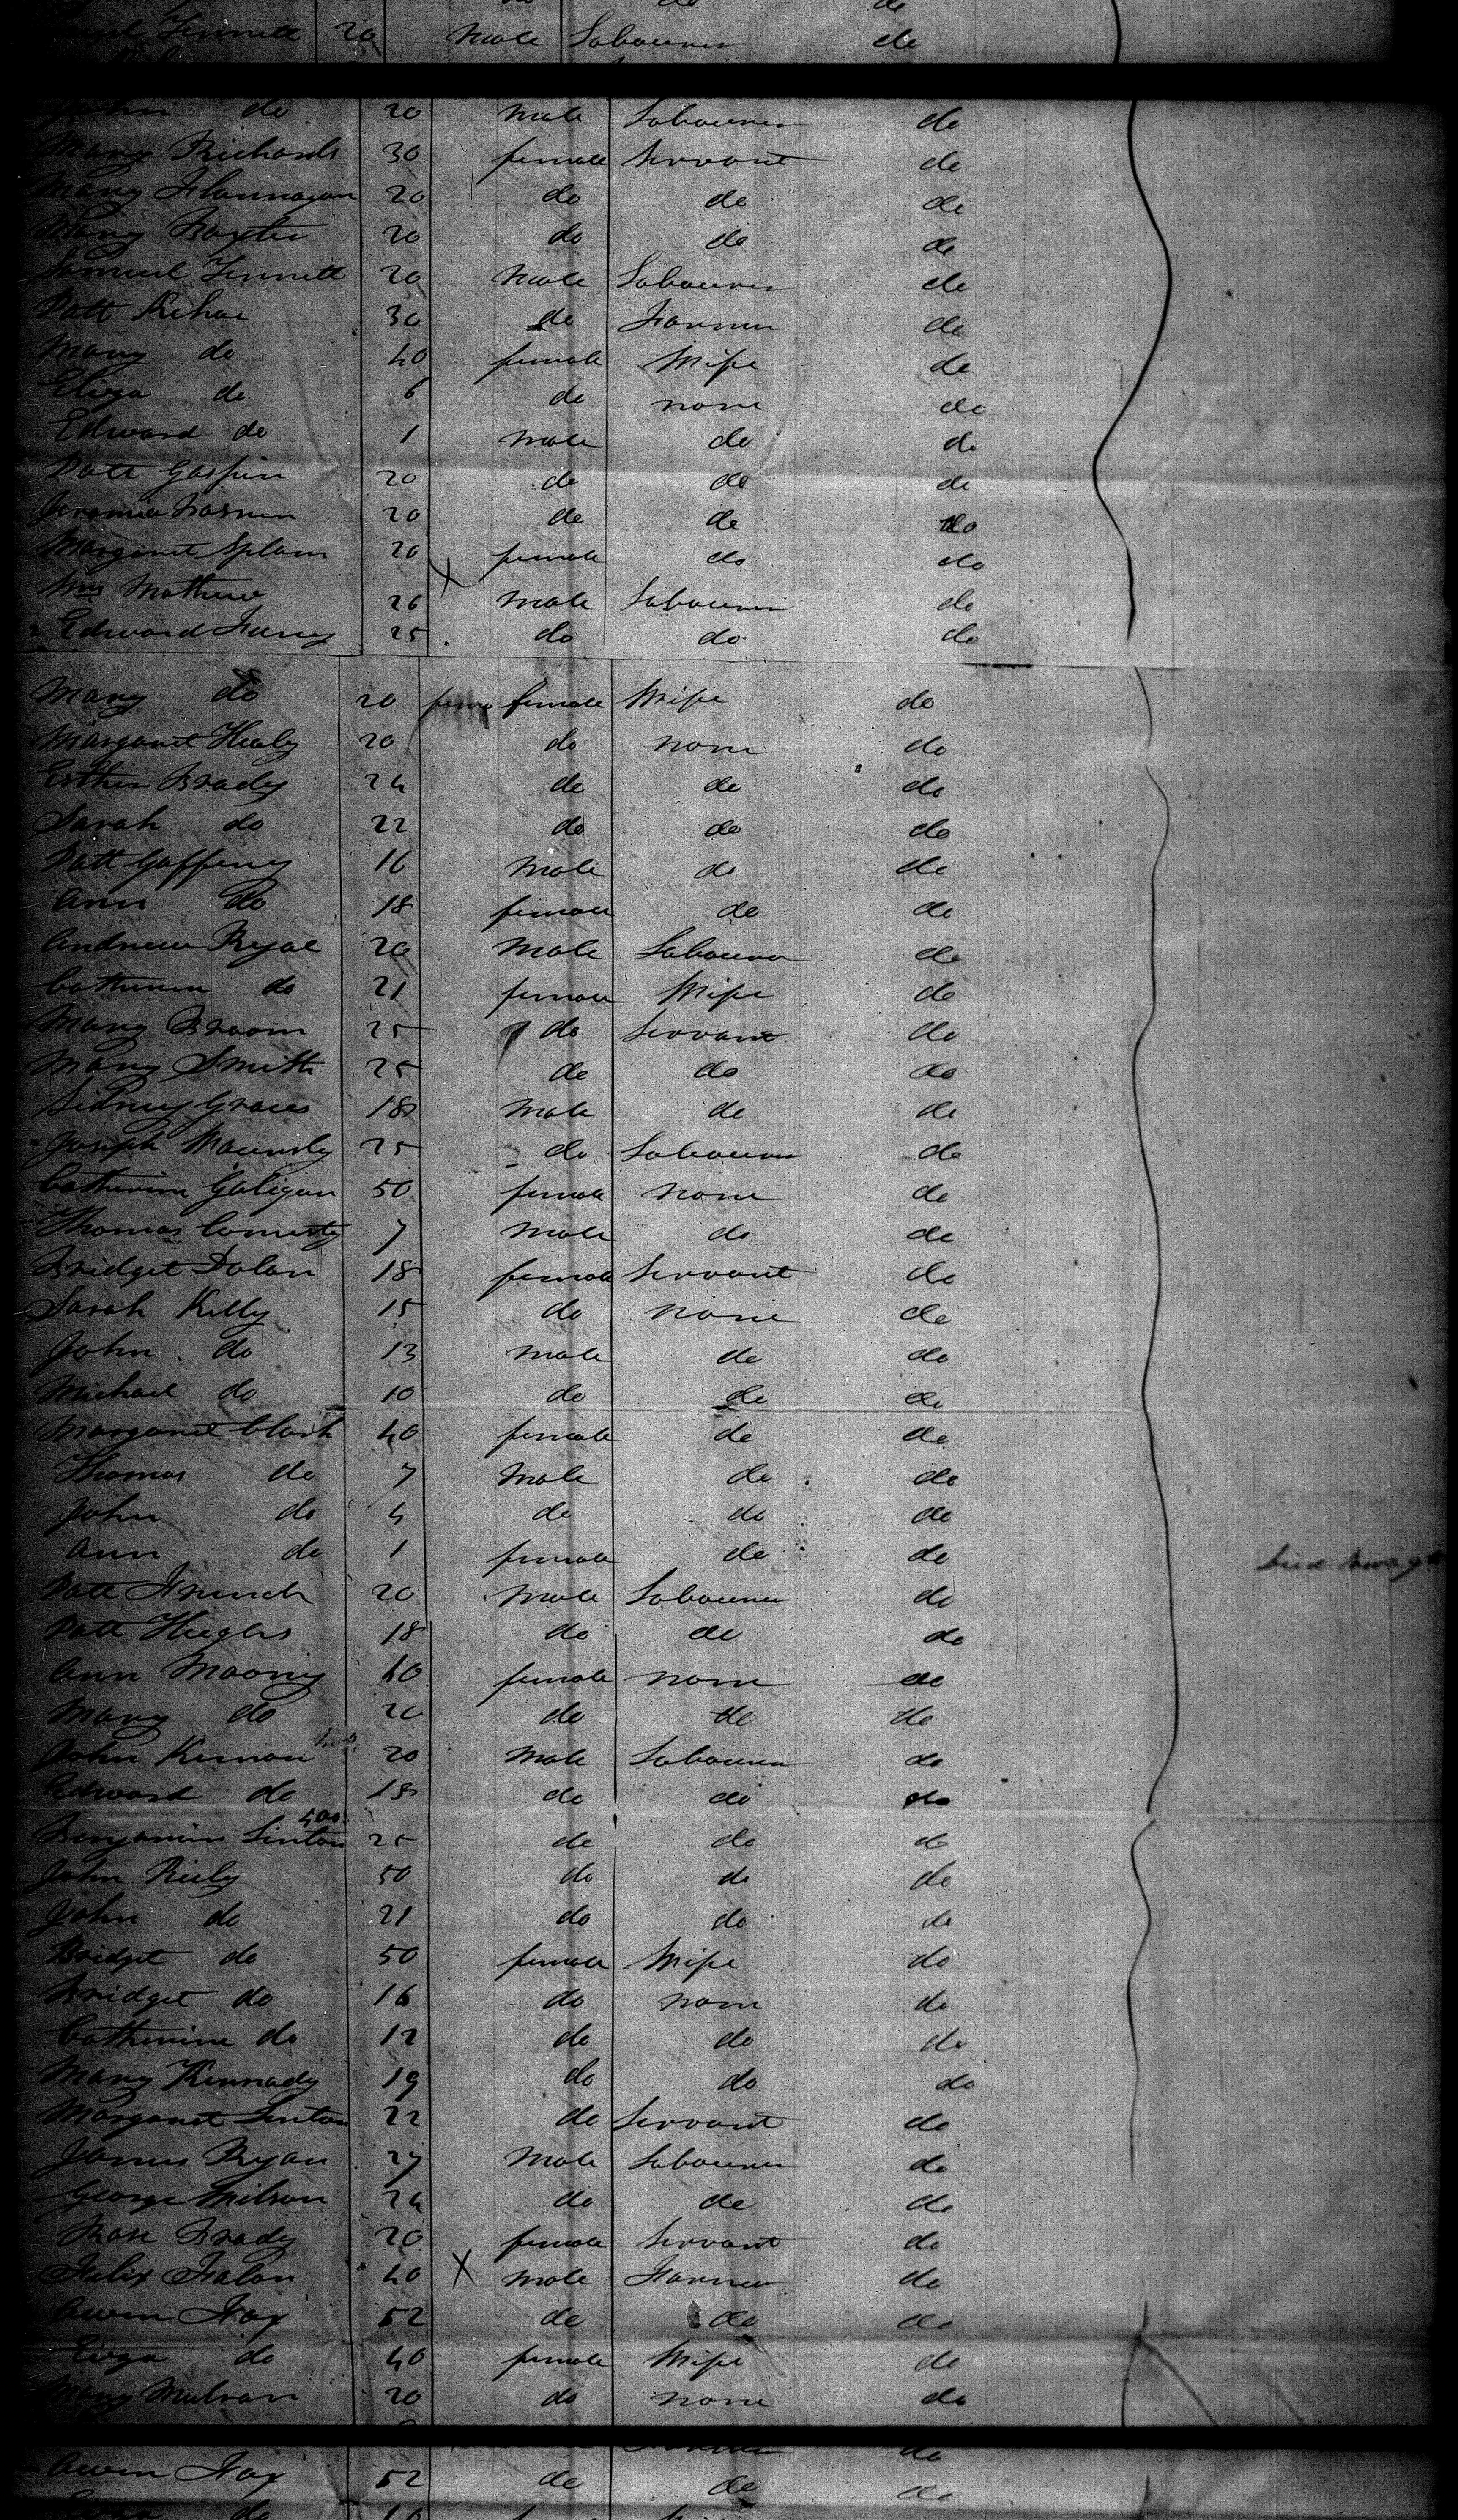 Samuel Tinnett 20 male Labourer do
John do 20 male Labourer do
Mary Richards 30 female Servant do
Mary Flannagan 20 do do do
Mary Baxter 20 do do do
Samuel Tinnett 20 male Labourer do
Patt Kehoe 30 do Farmer do
Mary do 40 female Wife do
Eliza do 6 do none do
Edward do 1 male do do
Patt 20 do do do
20 do do do
Margaret 20 female do do
Wm Mathew 26 male Labourer do
Edward 25 do do do
Mary do 20 female Wife do
Margaret Healy 20 do none do
Esther Brady 24 do do do
Sarah do 22 do do do
Patt Gaffeny 16 male do do
Ann do 18 female do do
Andrew Ryal 20 male Labourer do
Catherin do 21 female Wife do
Mary Broom 25 do Servant do
Mary Smith 25 do do do
Sidney 18 male do do
Joseph 25 do Labourer do
Catherine Galigan 50 female none do
Thomas 7 male do do
Bridget Dolan 18 female Servant do
Sarah Kelly 15 do none do
John do 13 male do do
Michael do 10 do do do
Margaret Clark 40 female do do
Thomas do 7 male do do
John do 4 do do do
Ann do 1 female do do
Patt French 20 male Labourer do
Patt Hughs 18 do do do
Ann Mooney 40 female none do
Mary do 20 do do do
John Kernan 20 male Labourer do
Edward do 18 do do do
400
Benjamin Linton 25 do do do
John Riely 50 do do do
John do 21 do do do
Bridget do 50 female Wife do
Bridget do 16 do none do
Catherine do 12 do do do
Mary Kennady 19 do do do
Margaret Linton 22 do Servant do
James Ryan 27 male Labourer do
George Wilson 24 do do do
Rose Brady 20 female Servant do
Felix Falon 40 X male Farmer do
Owen Fox 52 do do do
Eliza do 40 female Wife do
Mary 20 do none do
Owen Fox 52 do do do